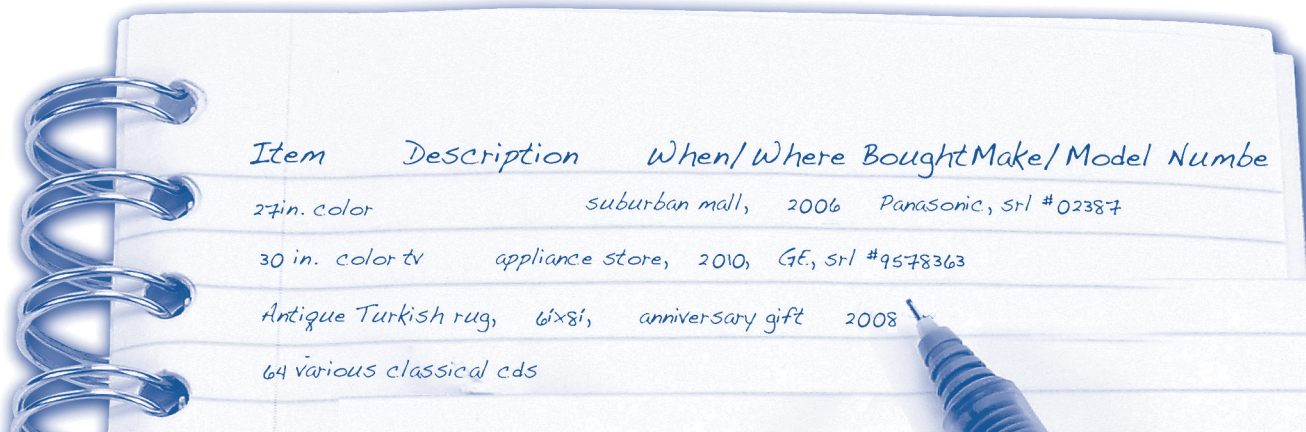 Item Description When/Where Bought Make/Model Numbe
27in. color suburban mall, 2006 Panasonic, srl #02387
30 in. color tv appliance store, 2010, GE, srl #9578363
Antique Turkish rug, 6íx8í, anniversary gift 2008
64 various classical cds